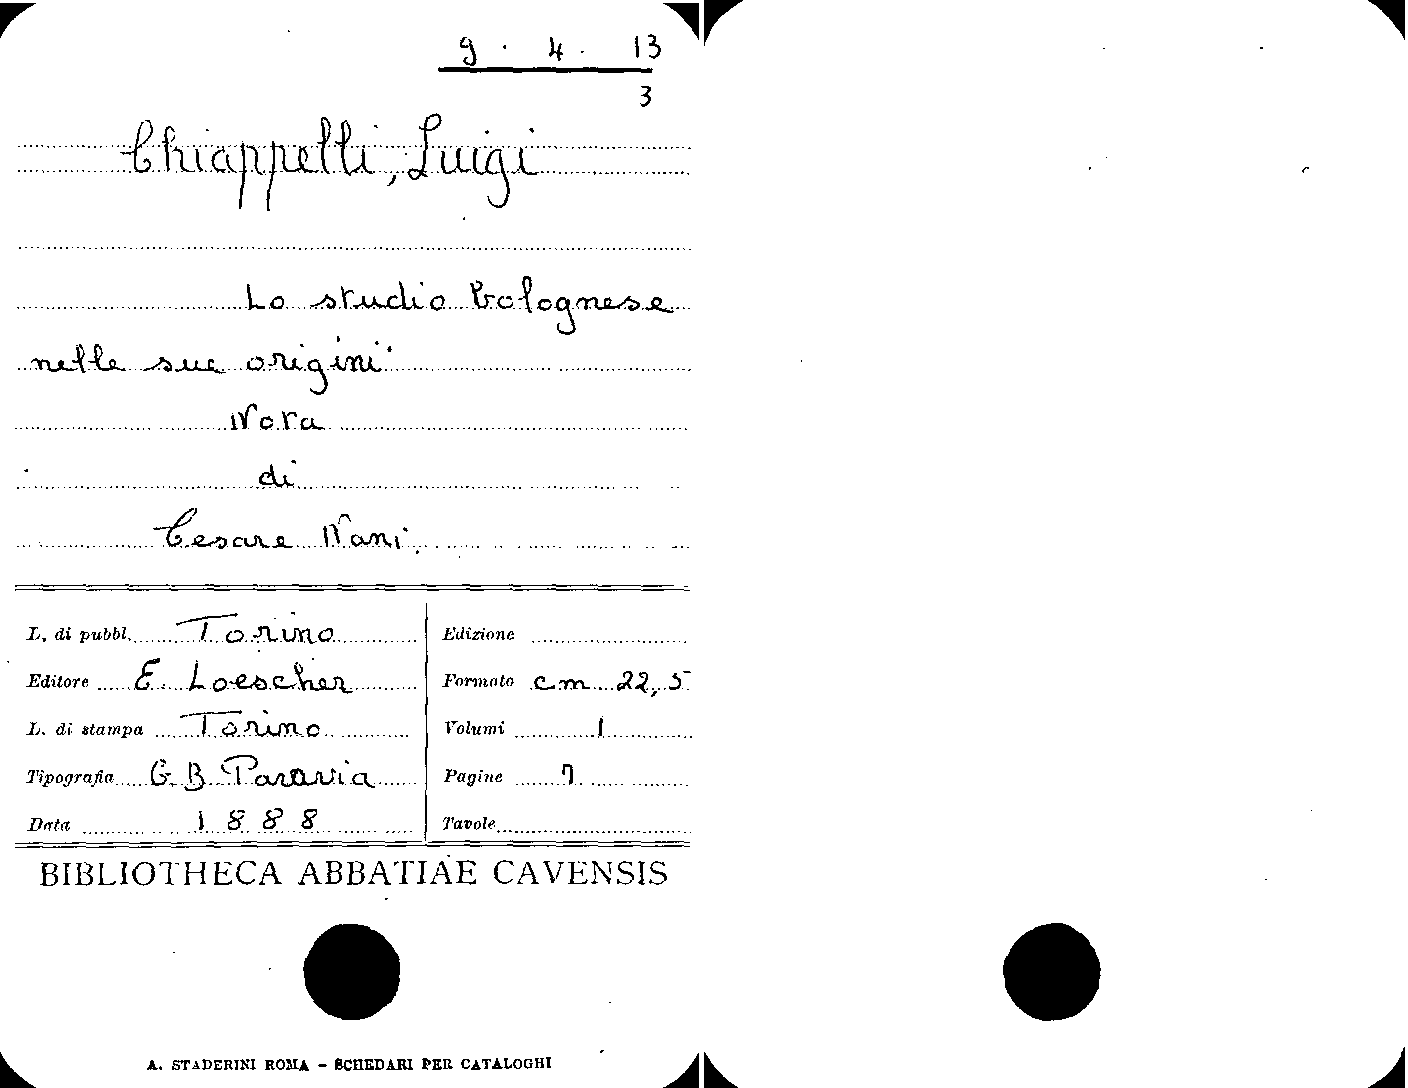 9 . 4 . 13
3
Chiappelli, Luigi
Lo studio bolognese
nelle sue origini
Nota
di
Cesare Nani.
L. di pubbl. Torino
Editore E. Loescher
L. di stampa Torino
Tipografia G. B. Paravia
Data 1888
Edizione
Formato cm 22,5
Volumi 1
Pagine 7
Tavole
BIBLIOTHECA ABBATIAE CAVENSIS
A. STADERINI ROMA - SCHEDARI PER CATALOGHI